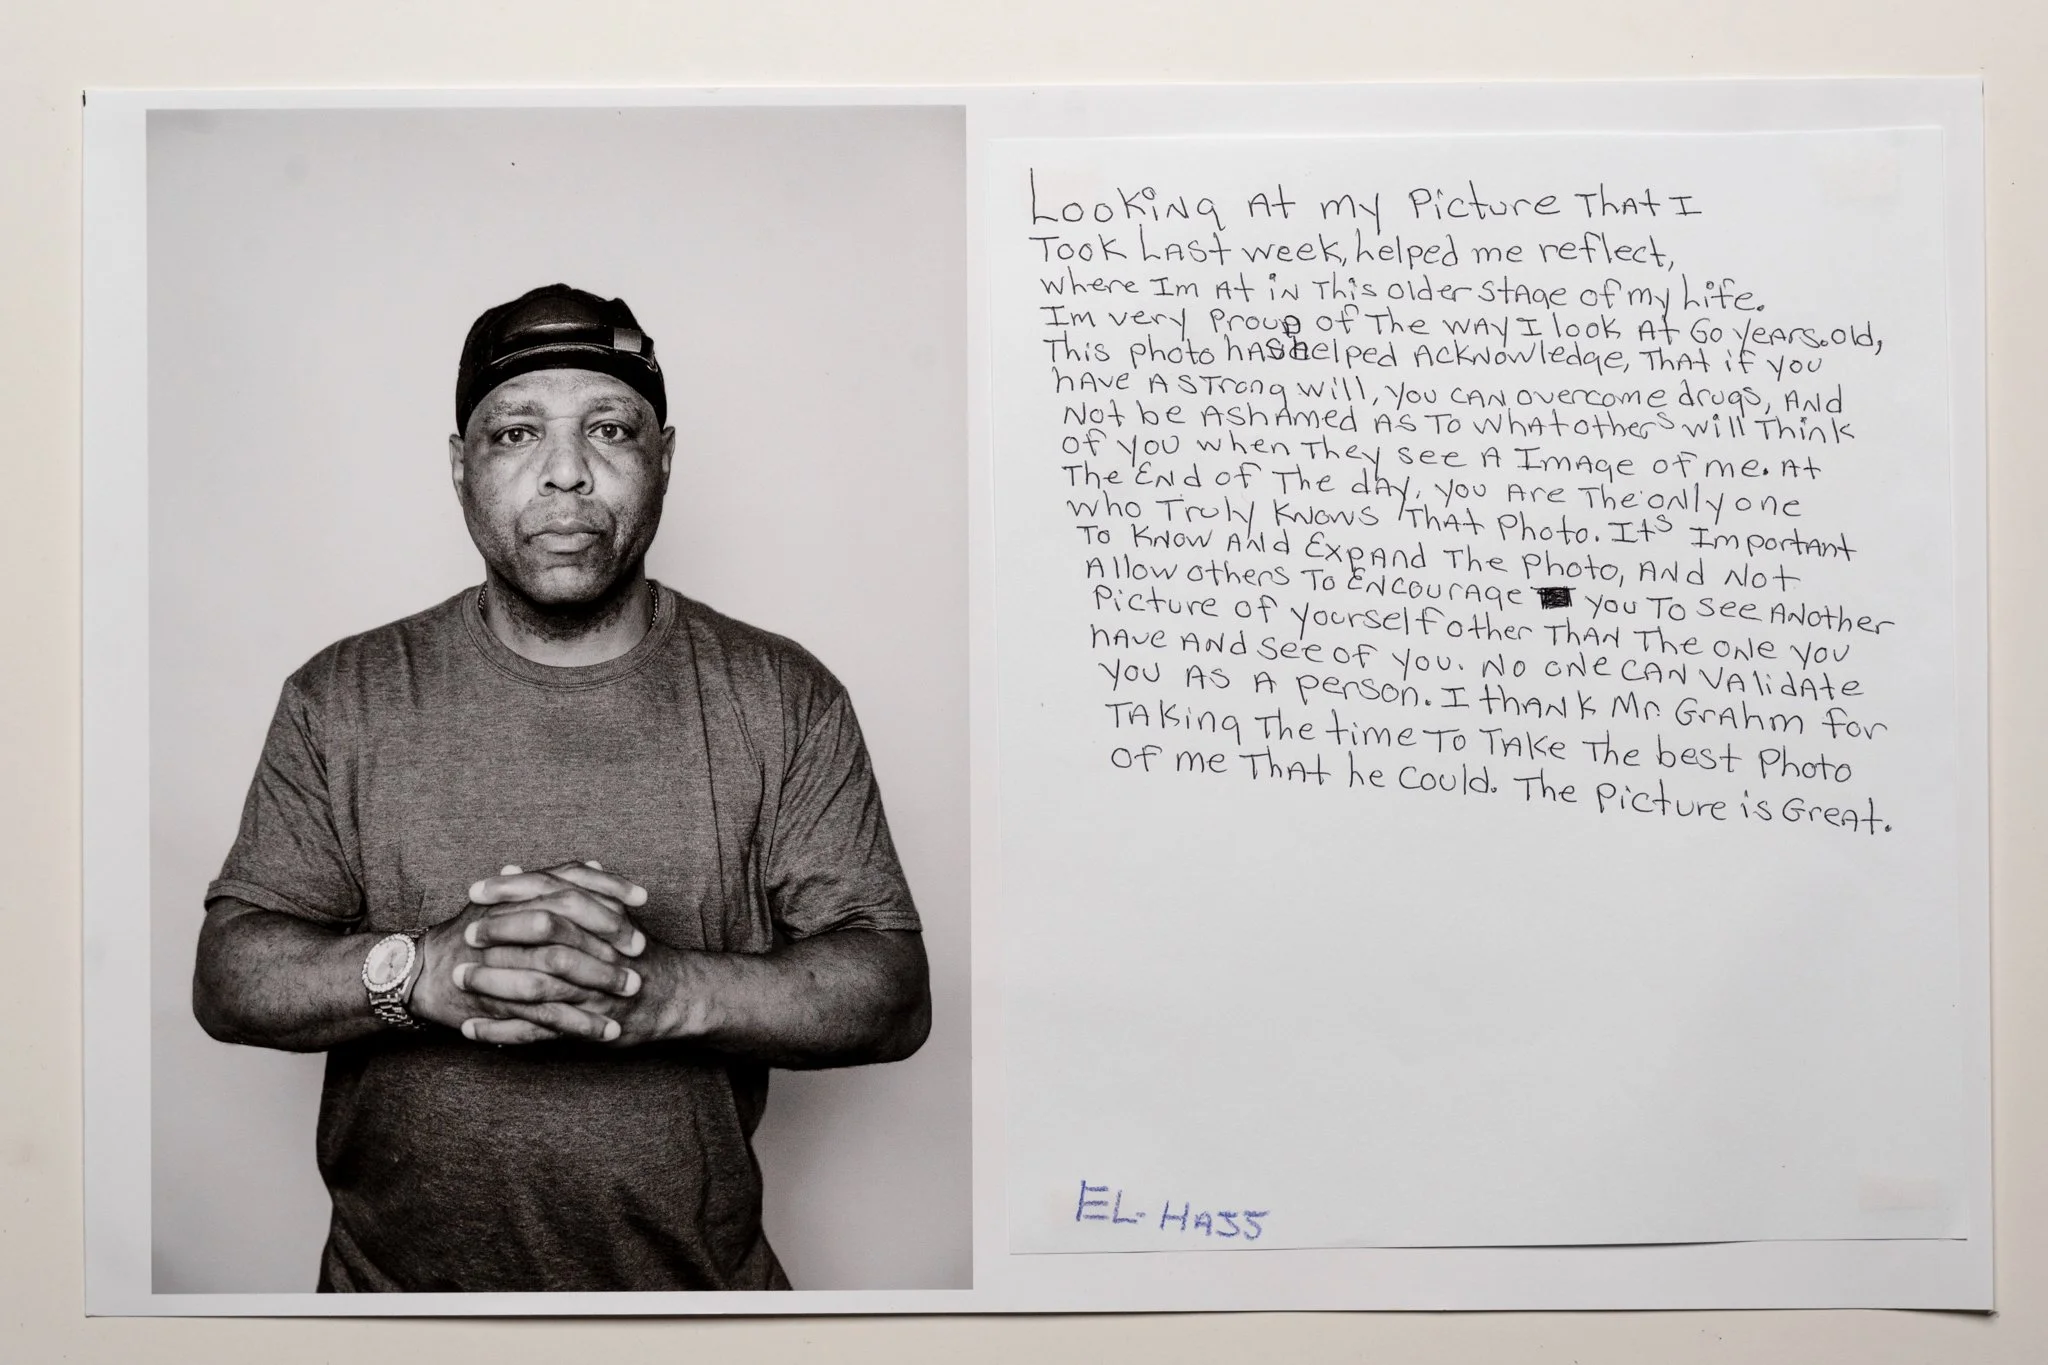 Looking At my Picture That I
Took Last week, helped me reflect,
where Im At in This older Stage of my Life.
Im very Proud of The way I look At 60 years.old,
This photo has helped Acknowledge, That if you
have A Strong will, you can overcome drugs, And
Not be Ashamed As To what others will Think
of you when They see A Image of me. At
The End of The day, you Are The only one
who Truly Knows That Photo. Its Important
To Know And Expand The Photo, And Not
Allow others To Encourage you To see Another
Picture of yourself other Than The one you
have And see of you. No one can validate
you As A person. I thank Mr. Grahm for
Taking The time To Take The best Photo
of me That he could. The Picture is Great.
EL-HAJJ